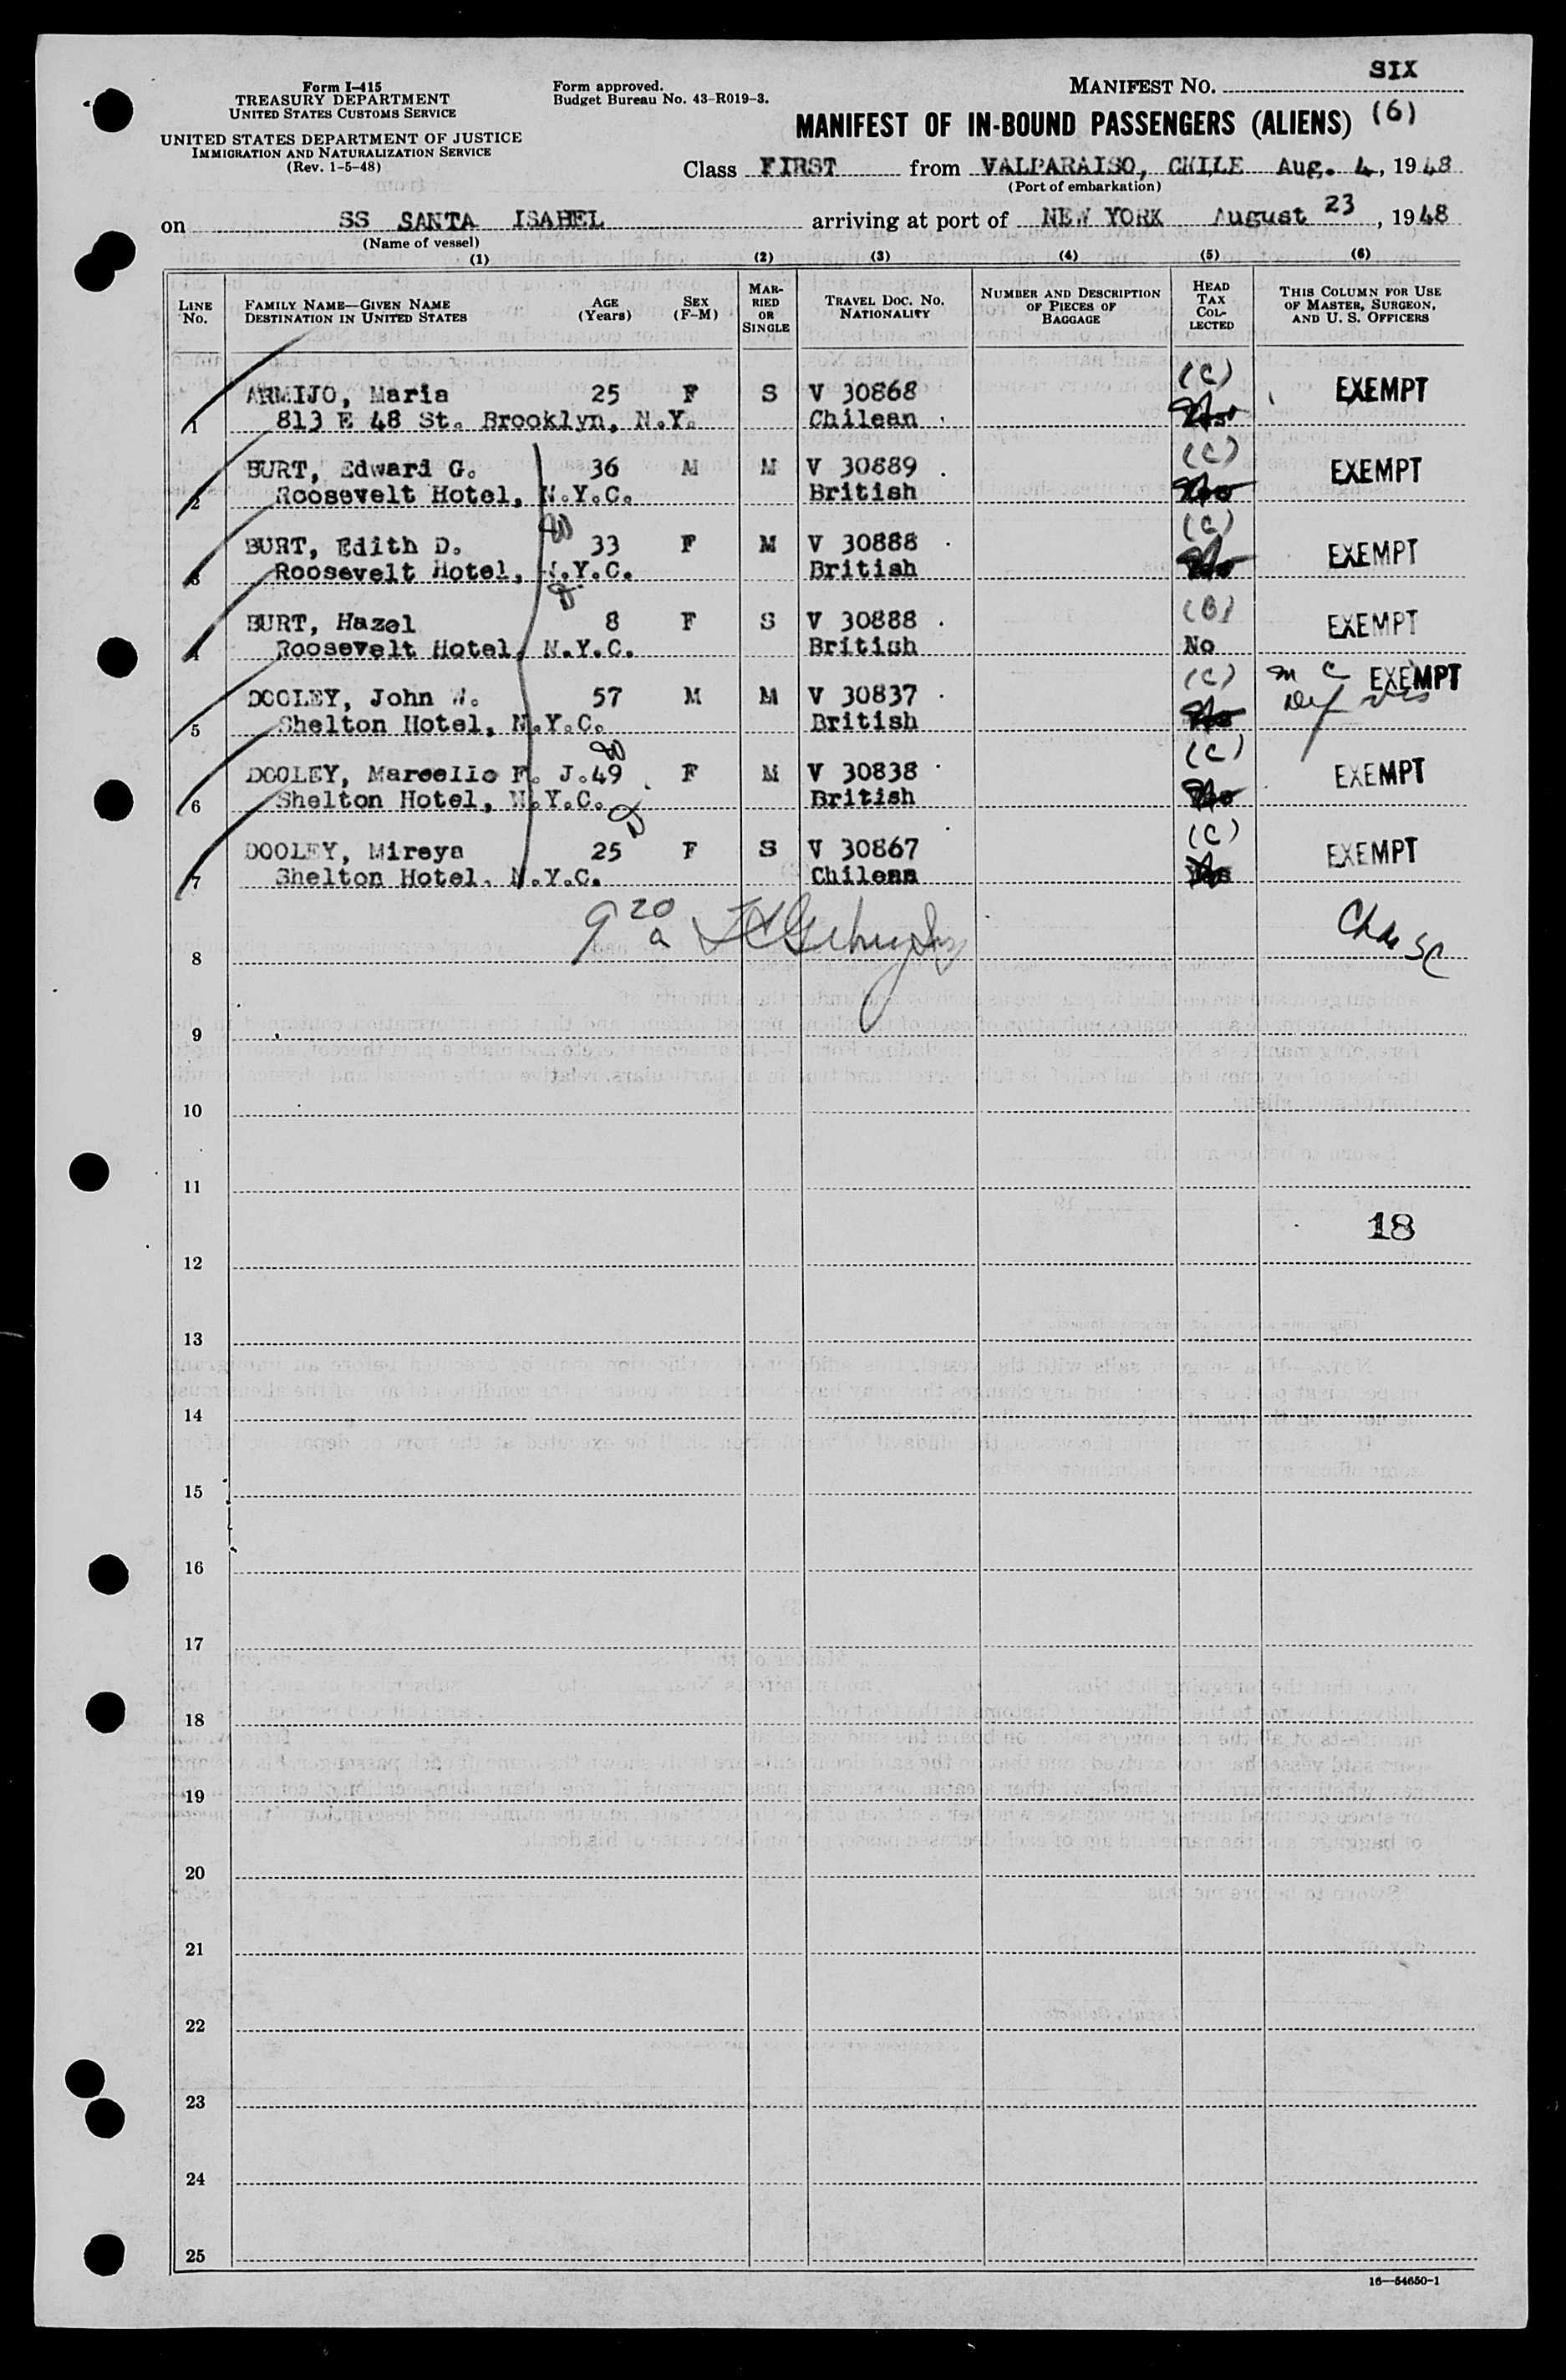 Form I-415
TREASURY DEPARTMENT
UNITED STATES CUSTOMS SERVICE
UNITED STATES DEPARTMENT OF JUSTICE
IMMIGRATION AND NATURALIZATION SERVICE
(Rev. 1-5-48)
Form approved.
Budget Bureau No. 43-R019-3.
MANIFEST NO. SIX
(6)
MANIFEST OF IN-BOUND PASSENGERS (ALIENS)
Class FIRST from VALPARAISO, CHILE Aug. 4, 1948
(Port of embarkation)
on SS SANTA ISABEL arriving at port of NEW YORK August 23, 1948
(Name of vessel)
(1) (2) (3) (4) (5) (6)
LINE No. FAMILY NAME—GIVEN NAME DESTINATION IN UNITED STATES AGE (Years) SEX (F-M) MARRIED OR SINGLE TRAVEL DOC. NO. NATIONALITY NUMBER AND DESCRIPTION OF PIECES OF BAGGAGE HEAD TAX COLLECTED THIS COLUMN FOR USE OF MASTER, SURGEON, AND U. S. OFFICERS
ARMIJO, Maria 25 F S V 30868 (C) EXEMPT
1 813 E 48 St. Brooklyn, N.Y. Chilean
BURT, Edward G. 36 M M V 30889 (C) EXEMPT
2 Roosevelt Hotel, N.Y.C. British
BURT, Edith D. 33 F M V 30888 (C) EXEMPT
3 Roosevelt Hotel, N.Y.C. British
BURT, Hazel 8 F S V 30888 (B) EXEMPT
4 Roosevelt Hotel, N.Y.C. British No
DOOLEY, John W. 57 M M V 30837 (C) m c EXEMPT
5 Shelton Hotel, N.Y.C. British
DOOLEY, Marcelle F. J. 49 F M V 30838 (C) EXEMPT
6 Shelton Hotel, N.Y.C. British
DOOLEY, Mireya 25 F S V 30867 (C) EXEMPT
7 Shelton Hotel, N.Y.C. Chilean
9 20 a
8
9
10
11
18
12
13
14
15
16
17
18
19
20
21
22
23
24
25
16—54650-1